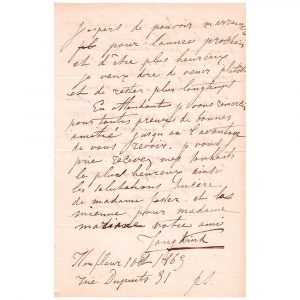 J'espers de pouvoir
pour l'annee prochain
et d'etre plus heureux
je veux dire de venir plutot
et de rester plus longtemps
En attendant je vous remercie
pour toutes preuves de bonnes
amitié jusqu'au l'avantage
de vous revoir. je vous
prie recevez mes souhaits
le plus heureux ainsi
les salutations sincere
de madame fesser et les
mienne pour madame
votre ami
Jongkind
Honfleur 10 1863
rue Dupuits 31